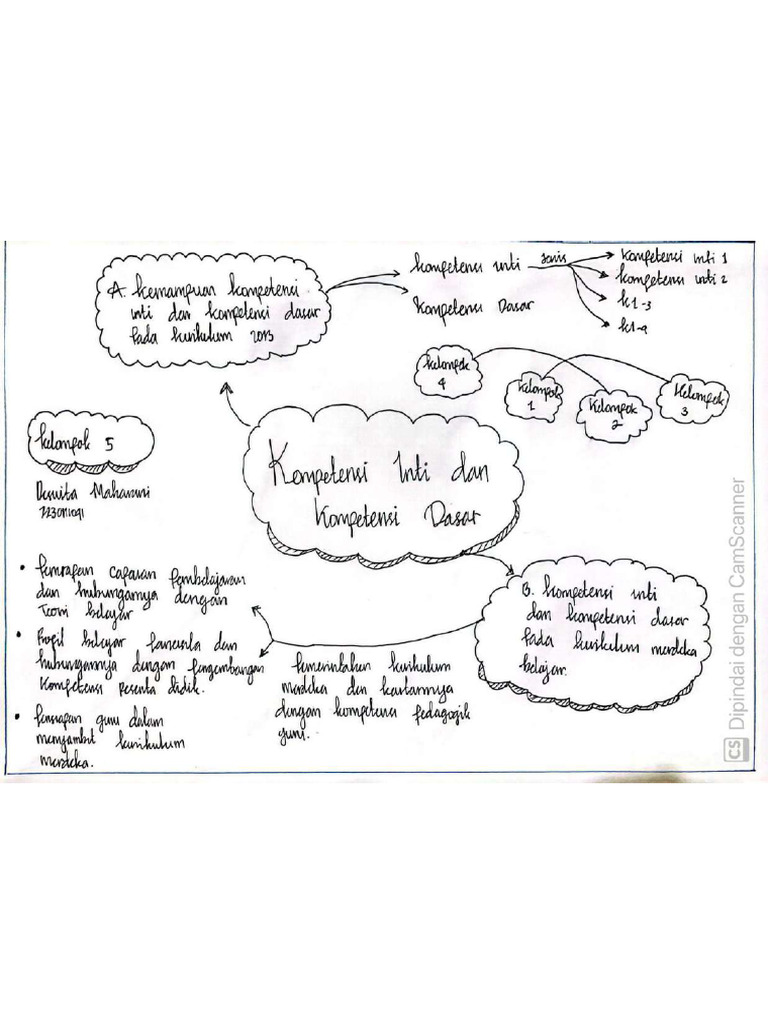 A. kemampuan kompetensi
inti dan kompetensi dasar
pada kurikulum 2013
kompetensi inti
Jenis
Kompetensi inti 1
kompetensi inti 2
k1-3
k1-4
Kompetensi Dasar
kelompok
4
Kelompok
1
Kelompok
2
Kelompok
3
kelompok 5
Kompetensi Inti dan
Kompetensi Dasar
B. kompetensi inti
dan kompetensi dasar
pada kurikulum merdeka
belajar.
• Penerapan capaian pembelajaran
dan hubungannya dengan
Teori belajar
• Profil belajar pancasila dan
hubungannya dengan pengembangan
Kompetensi peserta didik.
• Persiapan guru dalam
menyambut kurikulum
merdeka.
kurikulum
merdeka dan kaitannya
dengan kompetensi pedagogik
guru.
CS Dipindai dengan CamScanner